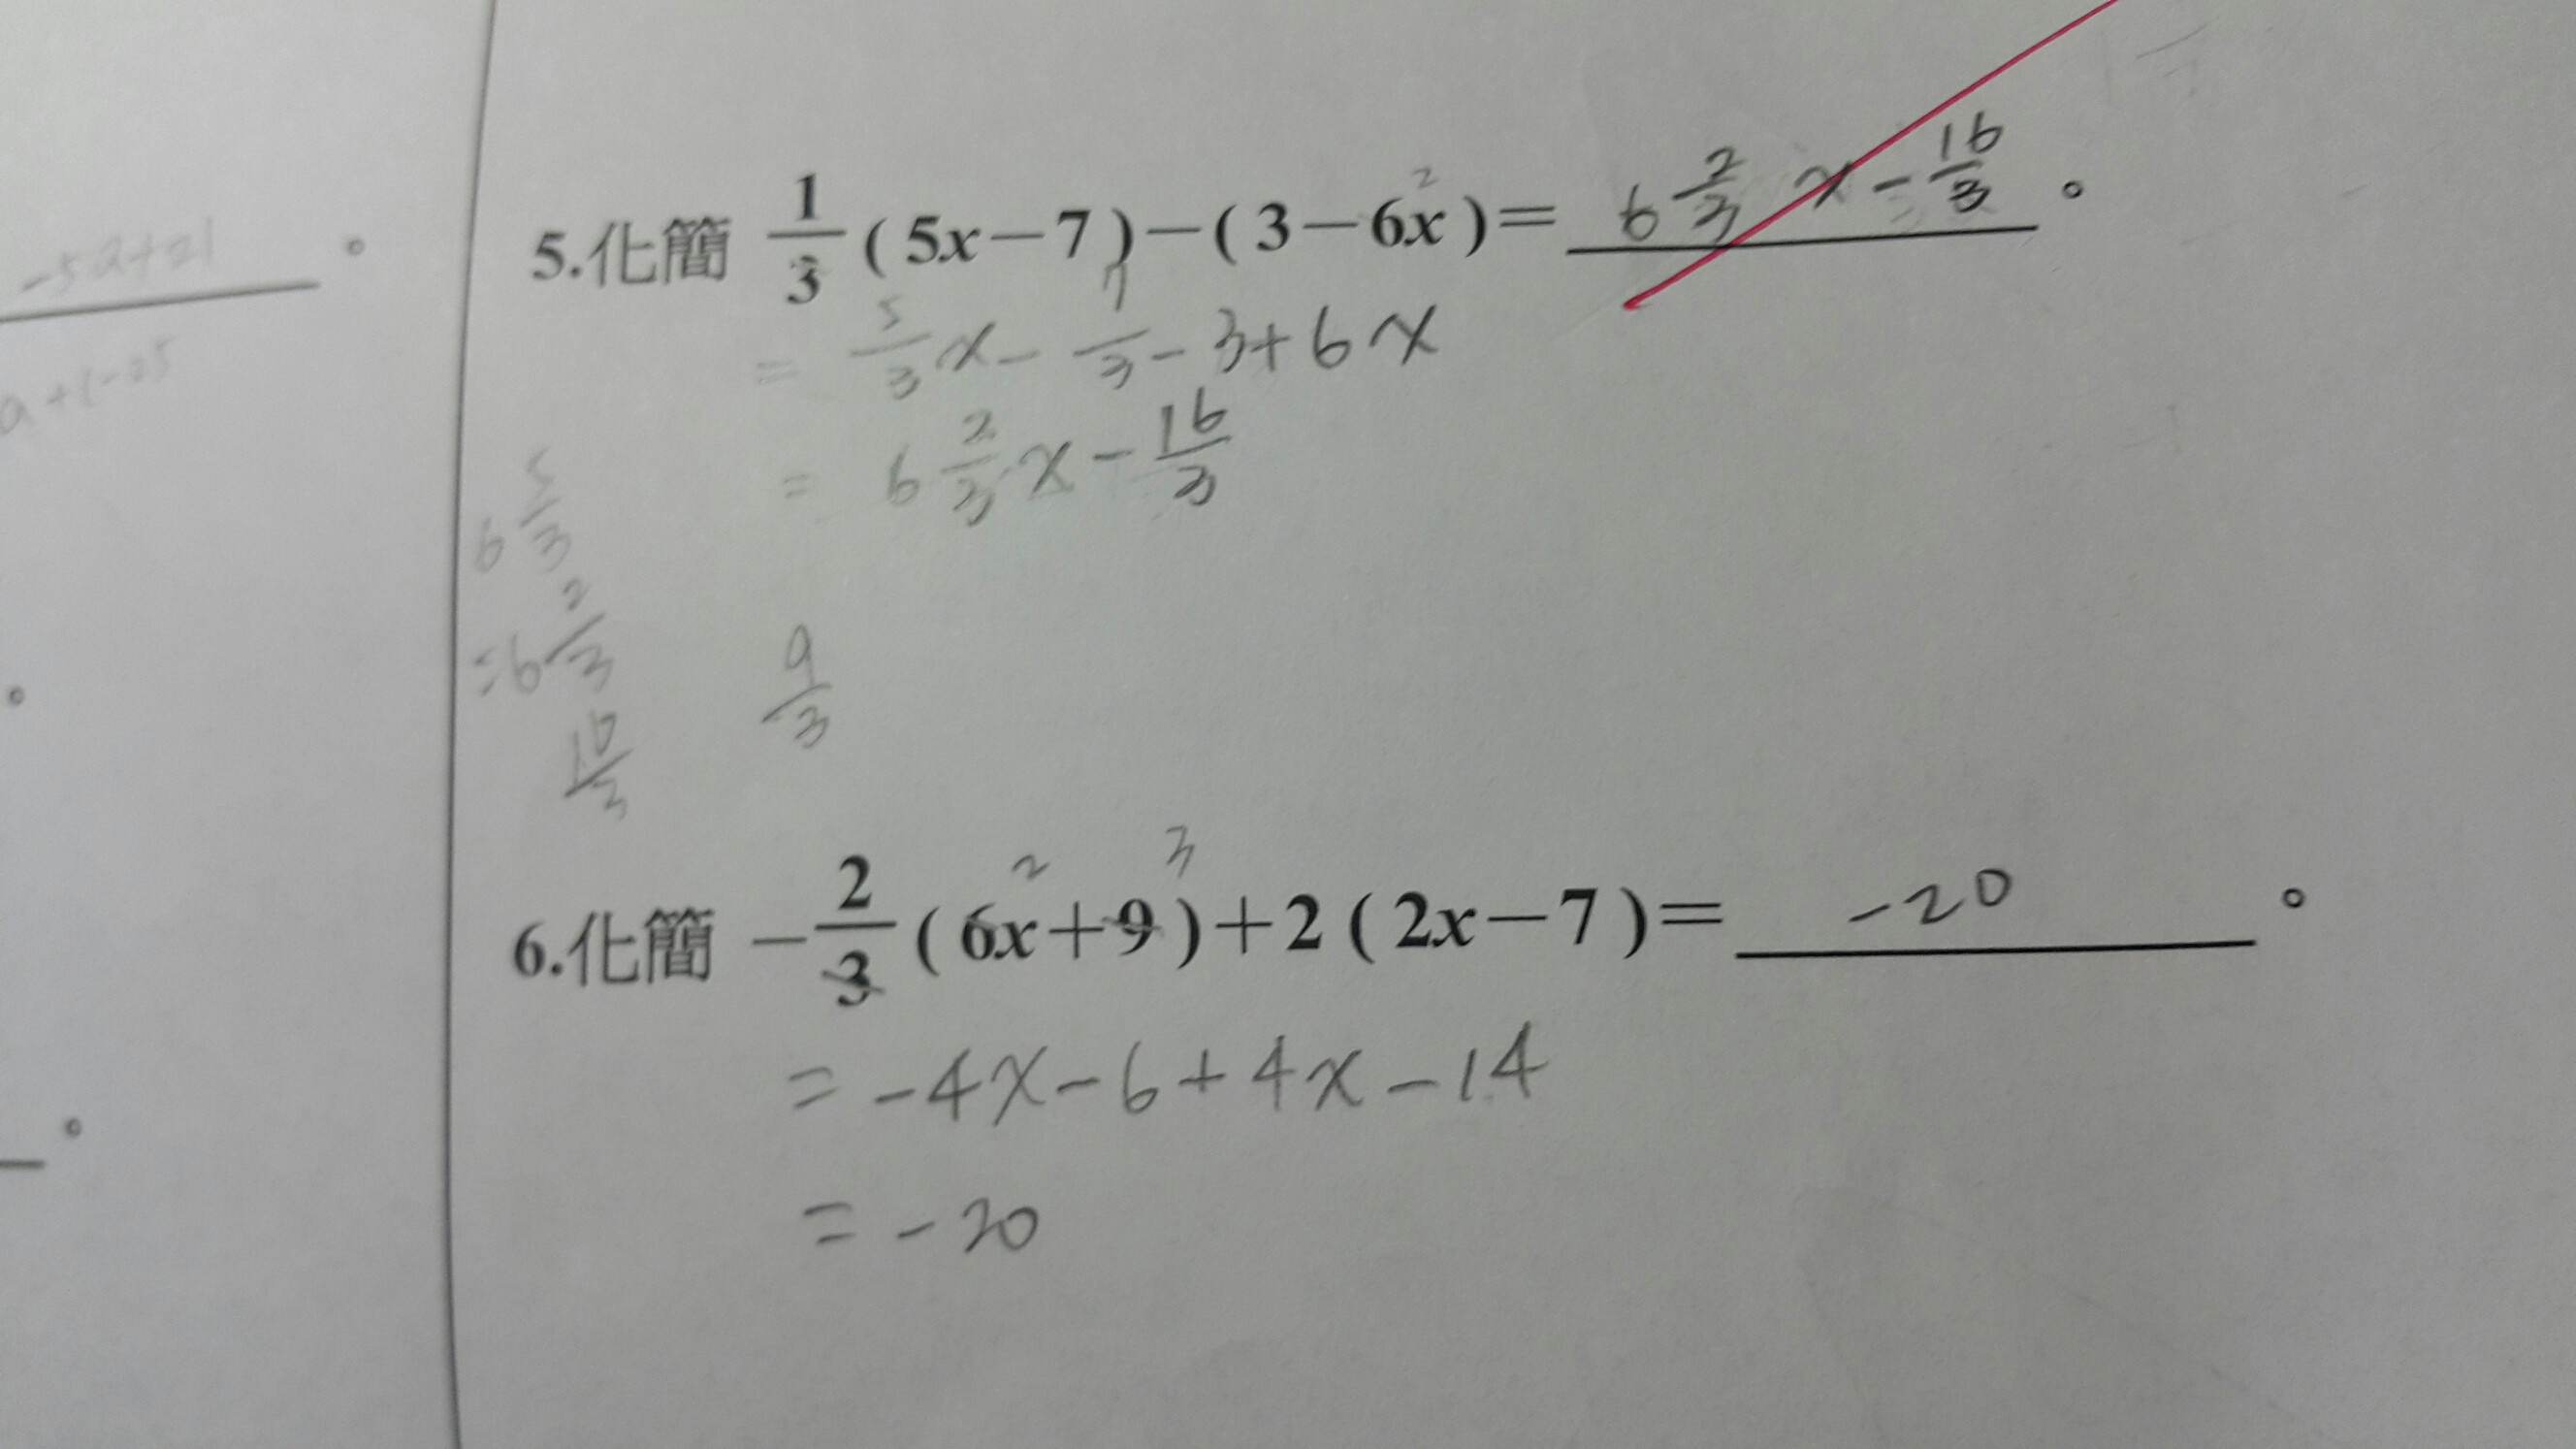 -5a+21 。
a+(-25
5.化簡 1/3 ( 5x－7 )－( 3－6x )＝ 6 2/3 x - 16/3 。
2
= 5/3 x - 7/3 - 3 + 6x
= 6 2/3 x - 16/3
6 5/3
= 6 2/3
9/3
16/3
6.化簡 －2/3 ( 6x＋9 )＋2 ( 2x－7 )＝ -20 。
2 3
= -4x - 6 + 4x - 14
= -20